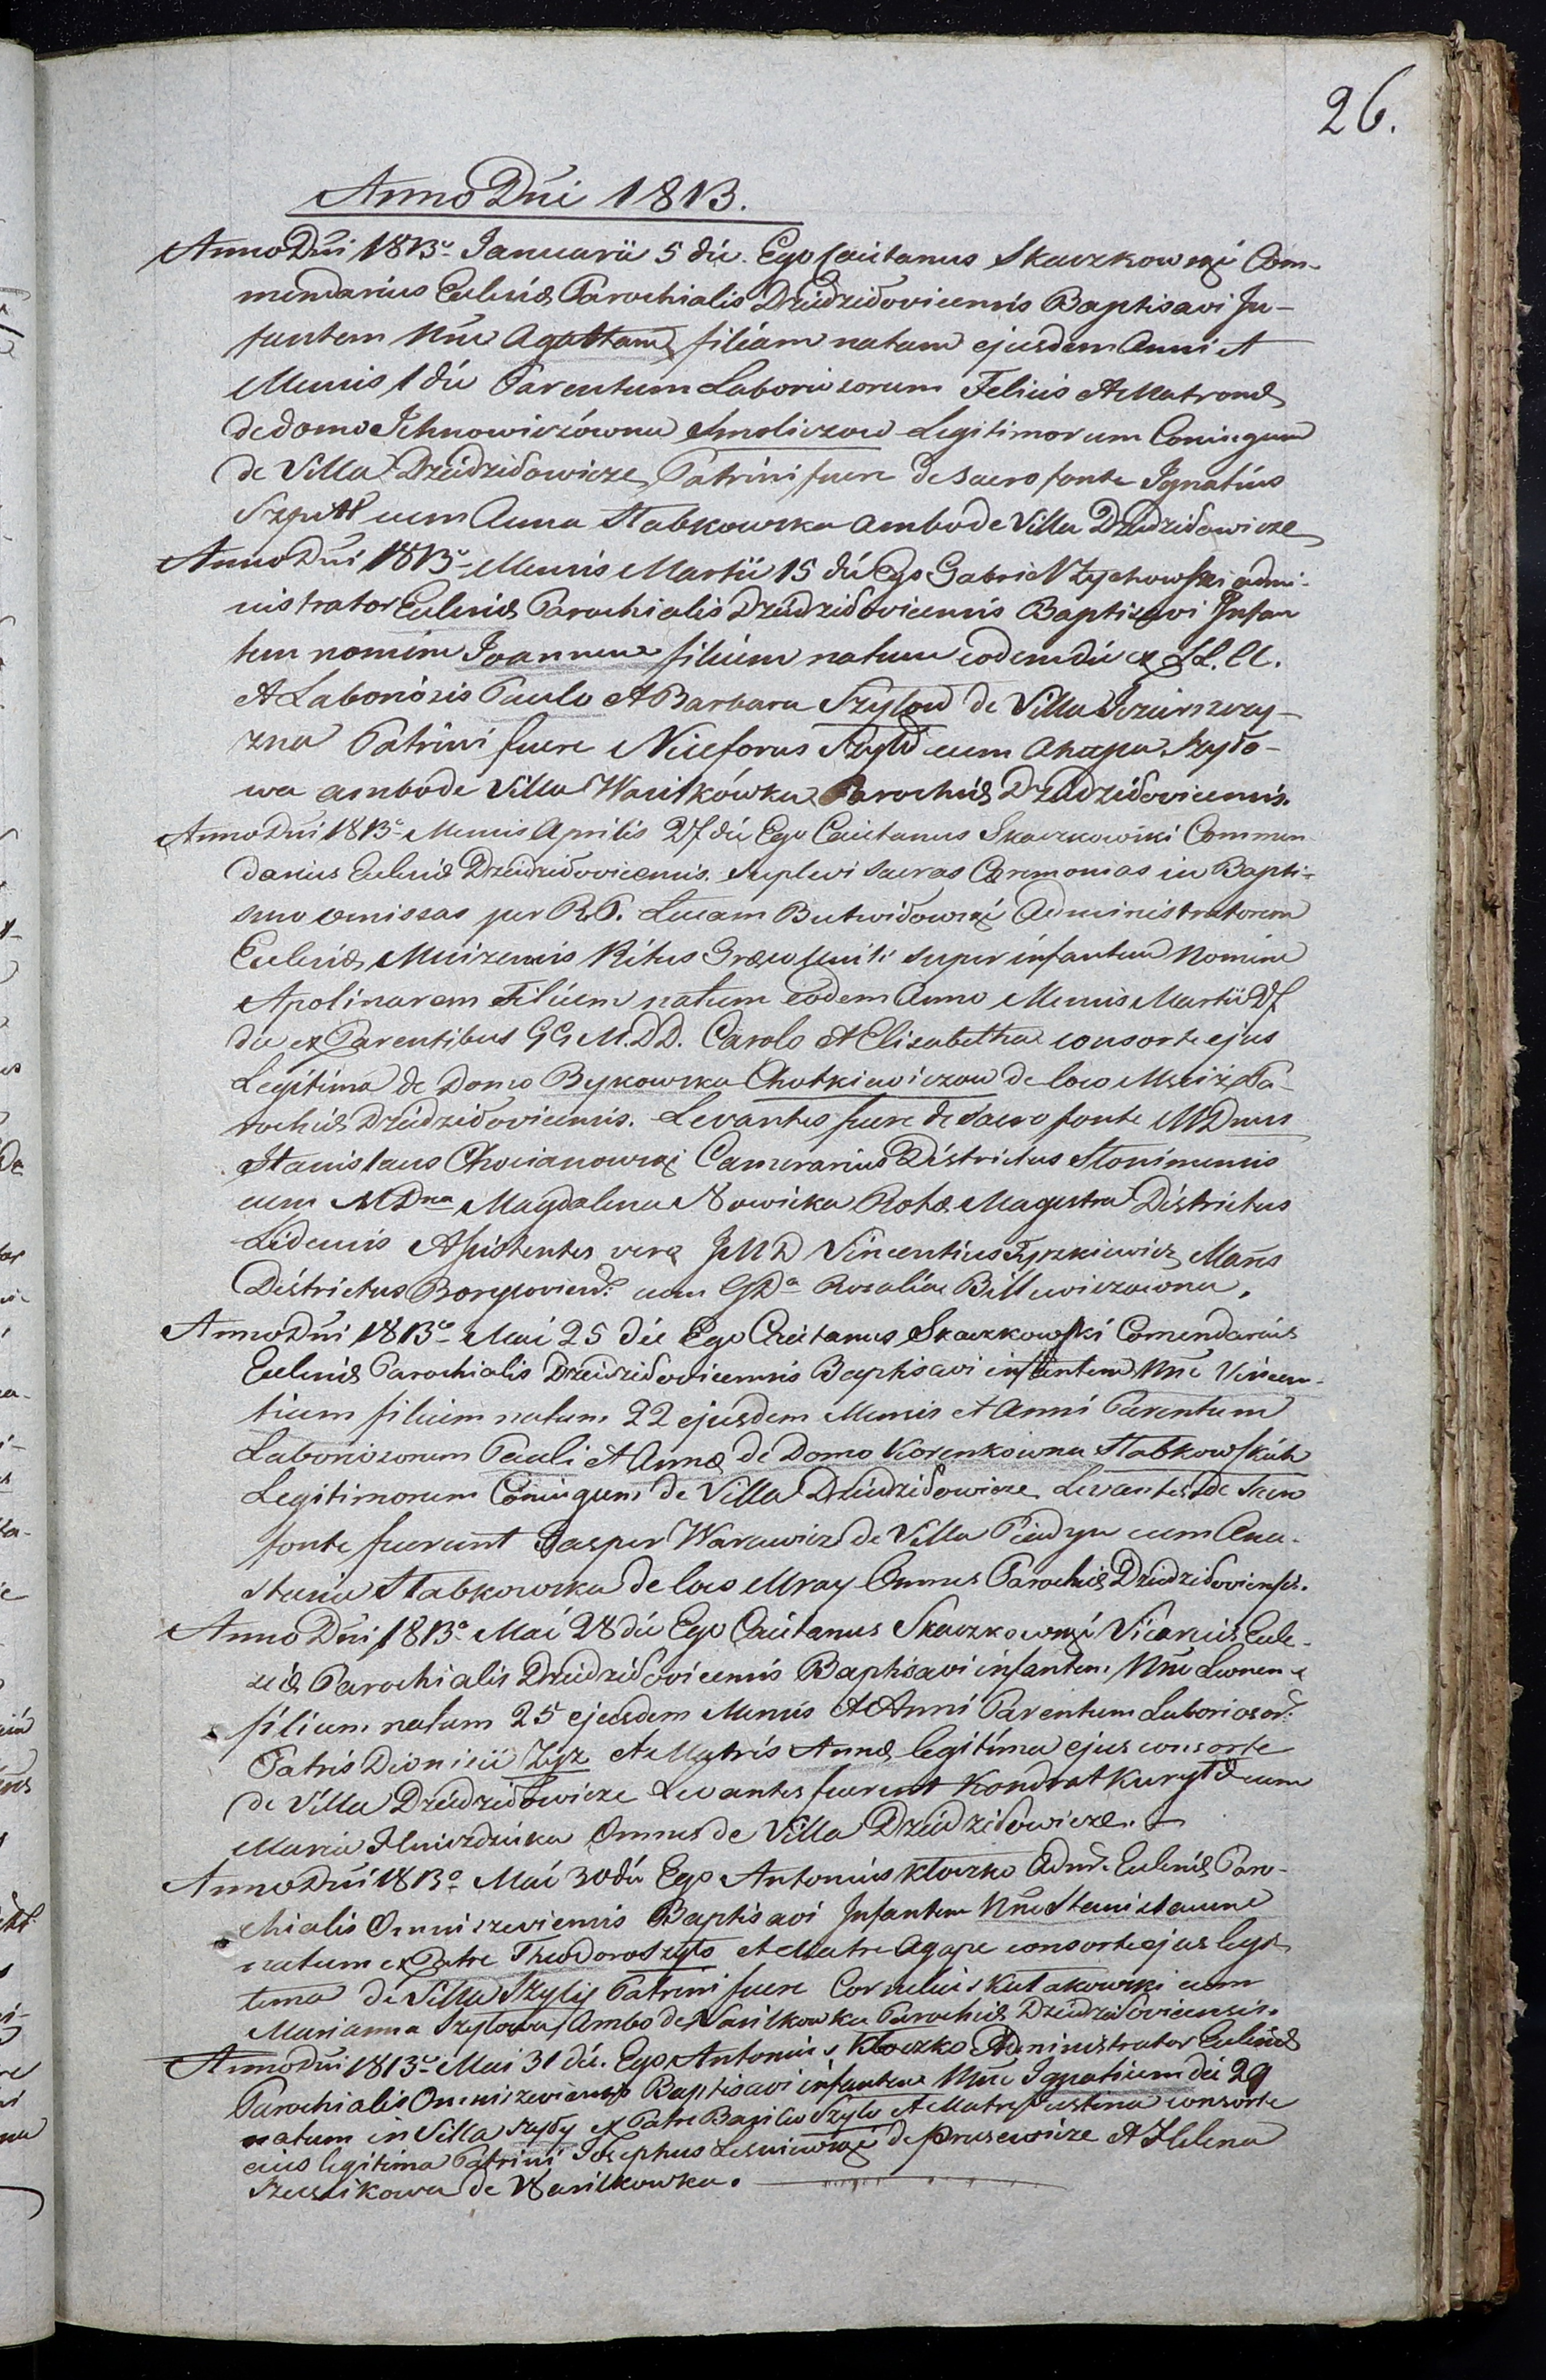 26.
Anno Dni 1813.
Anno Dni 1813º Januarii 5 die. Ego Caietanus Skaczkowski Com-
mendarius Ecclesiæ Parochialis Dziedzidovicensis Baptisavi In-
fantem Nne Agattam filiam natam ejusdem Anni et
Mensis 1 die Parentum Laboriosorum Felicis et Matronæ
de domo Jchnowiczówna Smoliczow Legitimorum Coniugum
de Villa Dziedzidowicze, Patrini fuere de sacro fonte Ignatius
cum Anna Stabkowska ambo de Villa Dziedzidowicze
Anno Dni 1813º Mensis Martii 15 die Ego Gabriel Zychowski admi-
nistrator Ecclesiæ Parochialis Dziedzidovicensis Baptisavi Infan
tem nomine Joannem filium natum eodem die ex LL. CC.
et Laboriosis Paulo et Barbara Szylow de Villa
zna Patrini fuere Niceforus Szyło cum Ahapa Szyło-
wa ambo de Villa Wasilkówka Parochiæ Dziedzidovicensis.
Anno Dni 1813º Mensis Aprilis 27 die Ego Caietanus Skaczkowski Commen
darius Ecclesiæ Dziedzidovicensis. Suplevi sacras Cæremonias in Bapti-
smo omissas per R. P. Lucam Butwidowski Administratorem
Ecclesiæ Mscizensis Ritus Græco Uniti super infantem Nomine
Apolinarem Filium natum eodem Anno Mensis Martii 27
die ex Parentibus GG M. DD. Carolo et Elisabetha consorte ejus
Legitima de Domo Bykowska Chotkiewiczow de loco Mściż Pa-
rochiæ Dziedzidovicensis. Levantes fuere de sacro fonte M Dnus
Stanislaus Chocianowski Camerarius Districtus Slonimensis
cum M Dna Magdalena Nowicka Rotæ Magistra Districtus
Lidensis Assistentes vero JM D Vincentius Tyszkiewicz
Districtus cum GDa Rosalia Billewiczowna.
Anno Dni 1813º Mai 25 die Ego Caietanus Skaczkowski Comendarius
Ecclesiæ Parochialis Dziedzidovicensis Baptisavi infantem Nne Vincen-
tium filium natum 22 ejusdem Mensis et Anni Parentum
Laboriosorum Pauli et Annæ de Domo Korenkowna Stabkowskich
Legitimorum Coniugum de Villa Dziedzidowicze Levantes de Sacro
fonte fuerunt Gasper Warawicz de Villa cum Ana-
stasia Stabkowska de loco Mray Omnes Parochiæ Dziedzidoviensis.
Anno Dni 1813º Mai 28 die Ego Caietanus Skaczkowski Vicarius Eccle-
siæ Parochialis Dziedzidovicensis Baptisavi infantem Nne Leonem
filium natum 25 ejusdem Mensis et Anni Parentum Laboriosor:
Patris Dionisii Zyz et Matris Annæ legitima ejus consorte
de Villa Dziedzidowicze Levantes fuerunt Kondrat Kuryło cum
Maria Omnes de Villa Dziedzidowicze.
Anno Dni 1813º Mai 30 die Ego Antonius Kłoczko Admr Ecclesiæ Paro-
chialis Omniszeviensis Baptisavi Infantem Nne Stanislaum
natum ex Patre Theodoro Szyło et Matre Agapa consorte ejus legi-
tima de Villa Szyły Patrini fuere Cornelius Kutakowski cum
Marianna Szyłowa Ambo de Wasilkowka Parochiæ Dziedzidovicensis.
Anno Dni 1813º Mai 31 die. Ego Antonius Kłoczko Administrator Ecclesiæ
Parochialis Omniszeviensis Baptisavi infantem Nne Ignatium die 29
natum in Villa Szyły ex Patre Basilio Szyło et Matre Justina consorte
eius legitima Patrini Josephus Lesniewski de Prusewicze et Helena
de Wasilkowka.